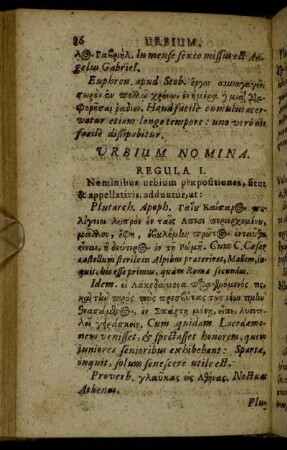 86 URBIUM.
λ⊙. Γαβριήλ. In mense sexto missus est An-
gelus Gabriel.
Euphron, apud Stob. ἔργον συναγαγεῖν
σωρὸν ἐν πολλῷ χρόνῳ, ἐν ἡμέρᾳ ᾗ μιᾷ
φορῆσαι ῥάδιον. Haud facile cumulus acer-
vatur etiam longo tempore: uno verò die
facile dissipabitur.
URBIUM NOMINA.
REGULA I.
Nominibus urbium præpositiones, sicut
& appellativis, adduntur, ut:
Plutarch. Apoph. ταῖς
λίχνιον λυπρὸν ἐν ταῖς Ἄλπεσι
μᾶλλον, ἔφη, πρῶτ⊙. ἐνταῦθα
εἶναι, ἢ δεύτερ⊙. ἐν τῇ Ῥώμῃ. Cum C. Cæsar
castellum sterile in Alpium præteriret, Mallem, in-
quit, hic esse primus, quàm Romæ secundus.
Idem. εἰ Λακεδαίμονα τις,
καὶ τὴν πρὸς τοὺς πρεσβύτας τῶν νέων τιμὴν
θεασάμεν⊙. ἐν Σπάρτῃ μόνῃ, εἶπε, λυσιτε-
λεῖ γηράσκειν. Cum quidam Lacedæmo-
nem venisset, & spectasset honorem, quem
juniores senioribus exhibebant: Spartæ,
inquit, solum senescere utile est.
Proverb. γλαῦκας εἰς Ἀθήνας. Noctuas
Athenas.
Plu-